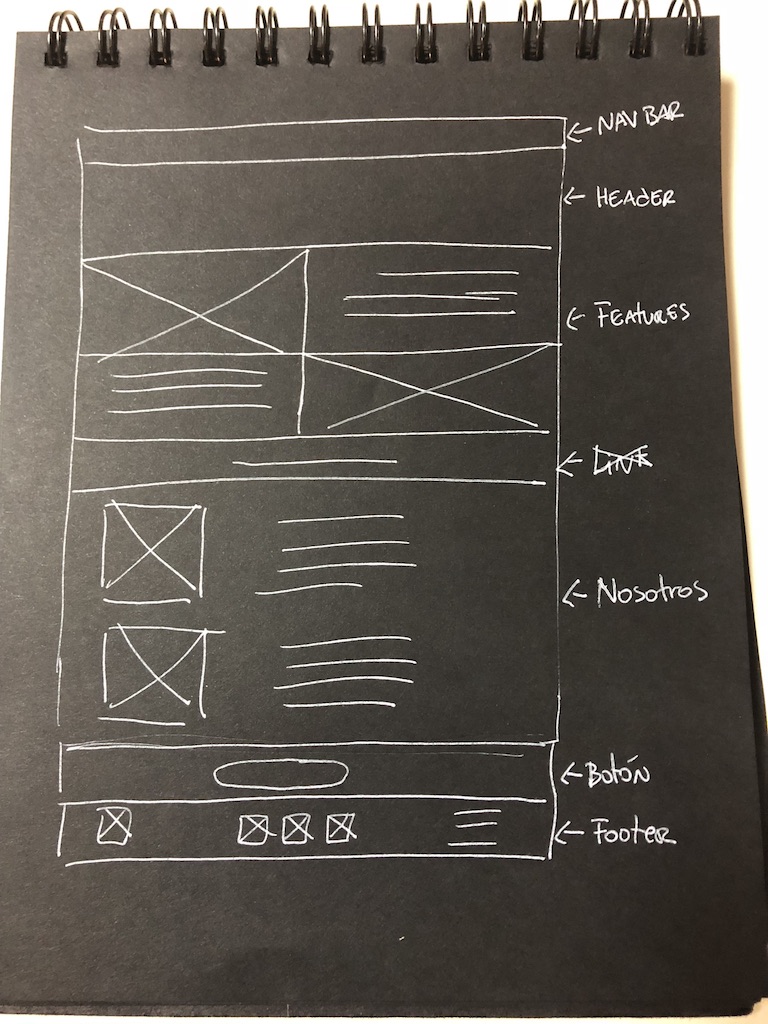 ← NAV BAR
← HEADER
← FEATURES
← LINK
← Nosotros
← Botón
← Footer